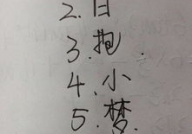 2.日
3.抱.
4.小
5.梦.